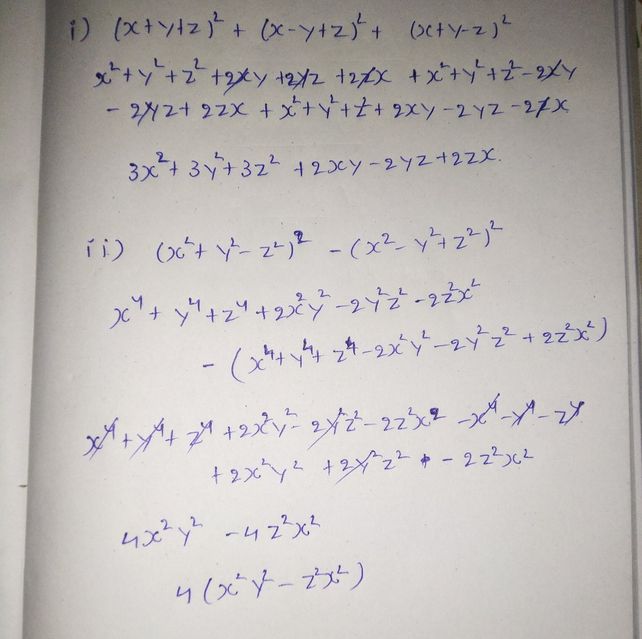 i) (x+y+z)² + (x-y+z)² + (x+y-z)²
x²+y²+z²+2xy+2yz+2zx +x²+y²+z²-2xy
-2yz+2zx+x²+y²+z+2xy-2yz-2zx
3x²+3y²+3z²+2xy-2yz+2zx.
ii) (x²+y²-z²)² -(x²-y²+z²)²
x⁴+y⁴+z⁴+2x²y²-2y²z²-2z²x²
-(x⁴+y⁴+z⁴-2x²y²-2y²z²+2z²x²)
x⁴+y⁴+z⁴+2x²y²-2y²z²-2z²x² -x⁴-y⁴-z⁴
+2x²y² +2y²z² -2z²x²
4x²y² -4z²x²
4(x²y²-z²x²)